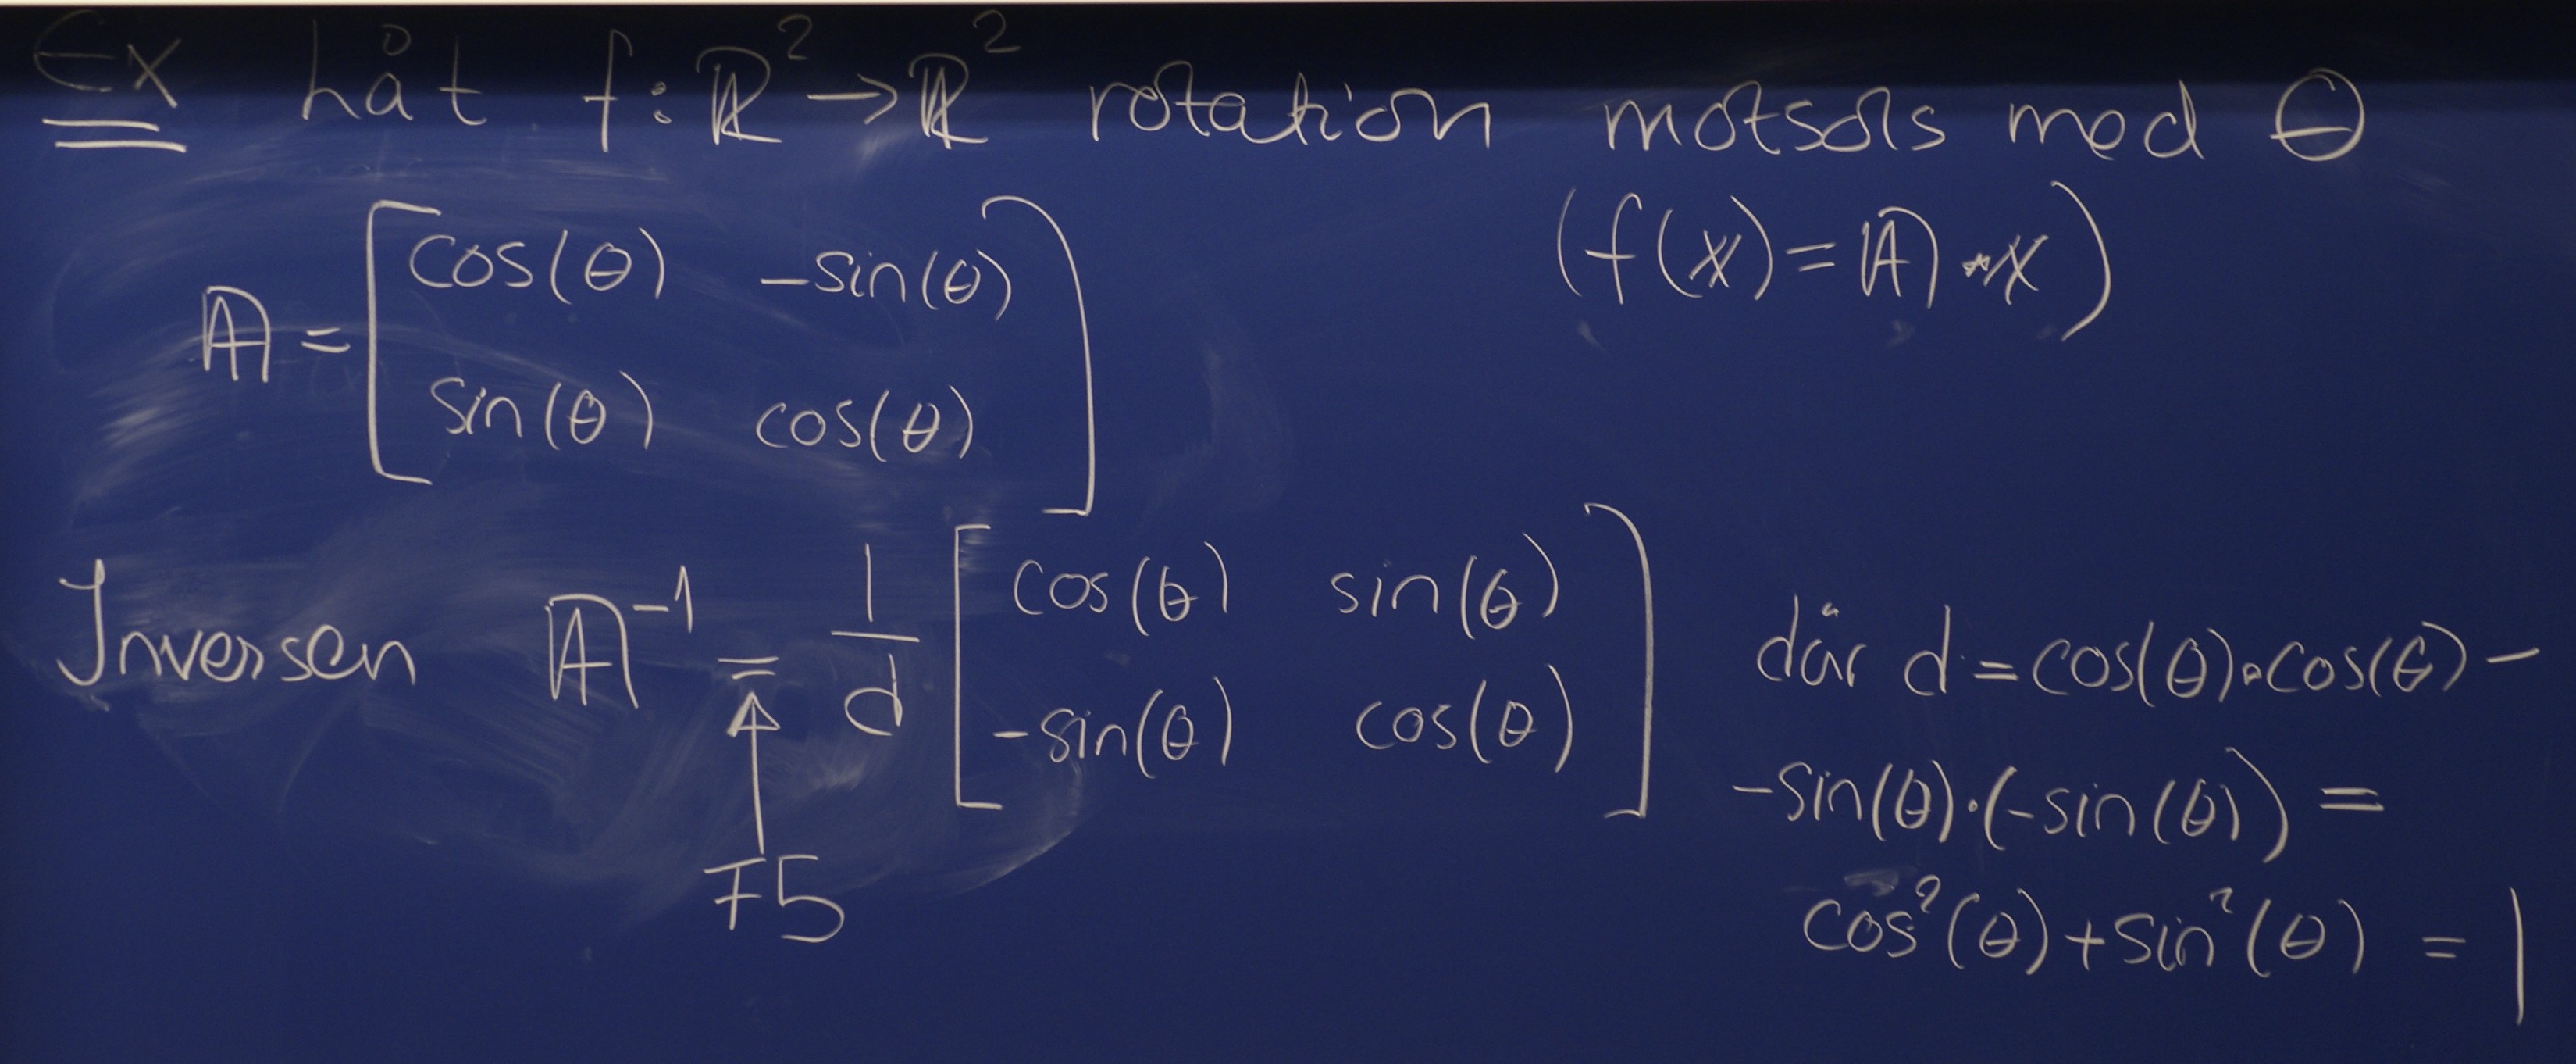 Ex låt f: ℝ² → ℝ² rotation motsols med θ
(f(x) = A · x)
A = [cos(θ) -sin(θ)
sin(θ) cos(θ)]
Inversen A⁻¹ = 1/d [cos(θ) sin(θ)
-sin(θ) cos(θ)]
↑
F5
där d = cos(θ)·cos(θ) -
-sin(θ)·(-sin(θ)) =
cos²(θ) + sin²(θ) = 1